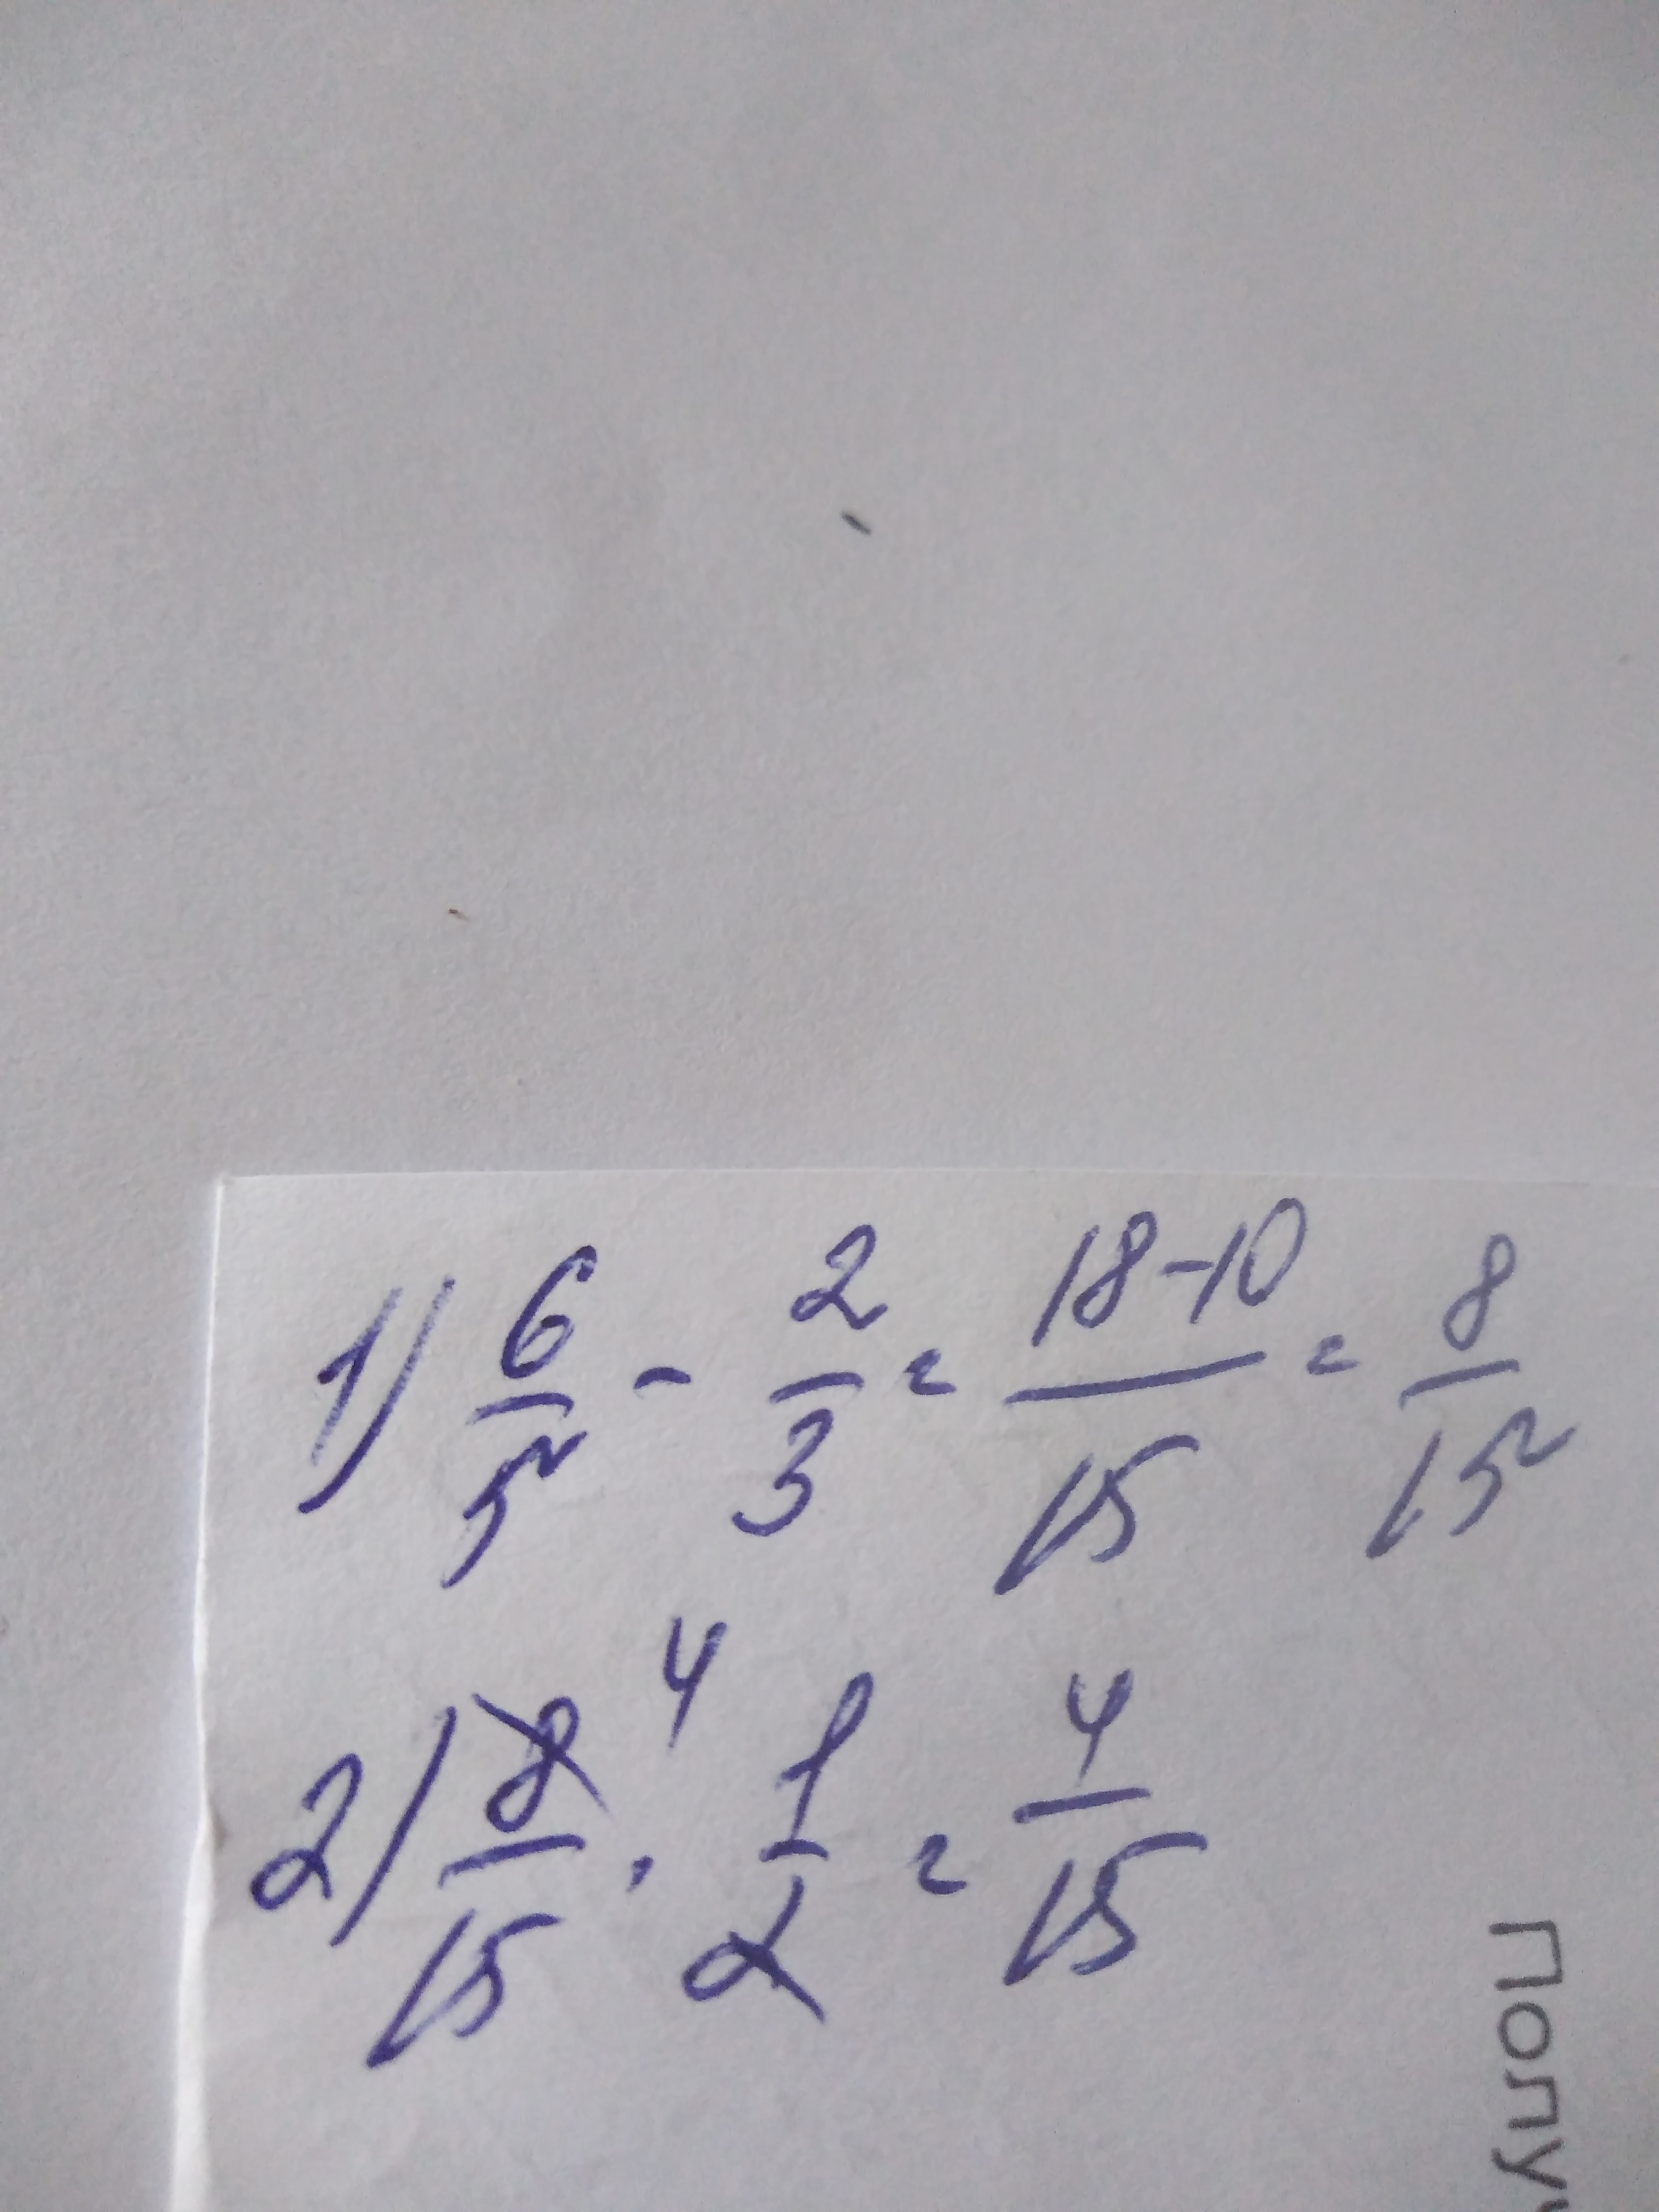 1) 6/5 - 2/3 = 18-10/15 = 8/15
2) 8/15 4 · 1/2 = 4/15
Полу